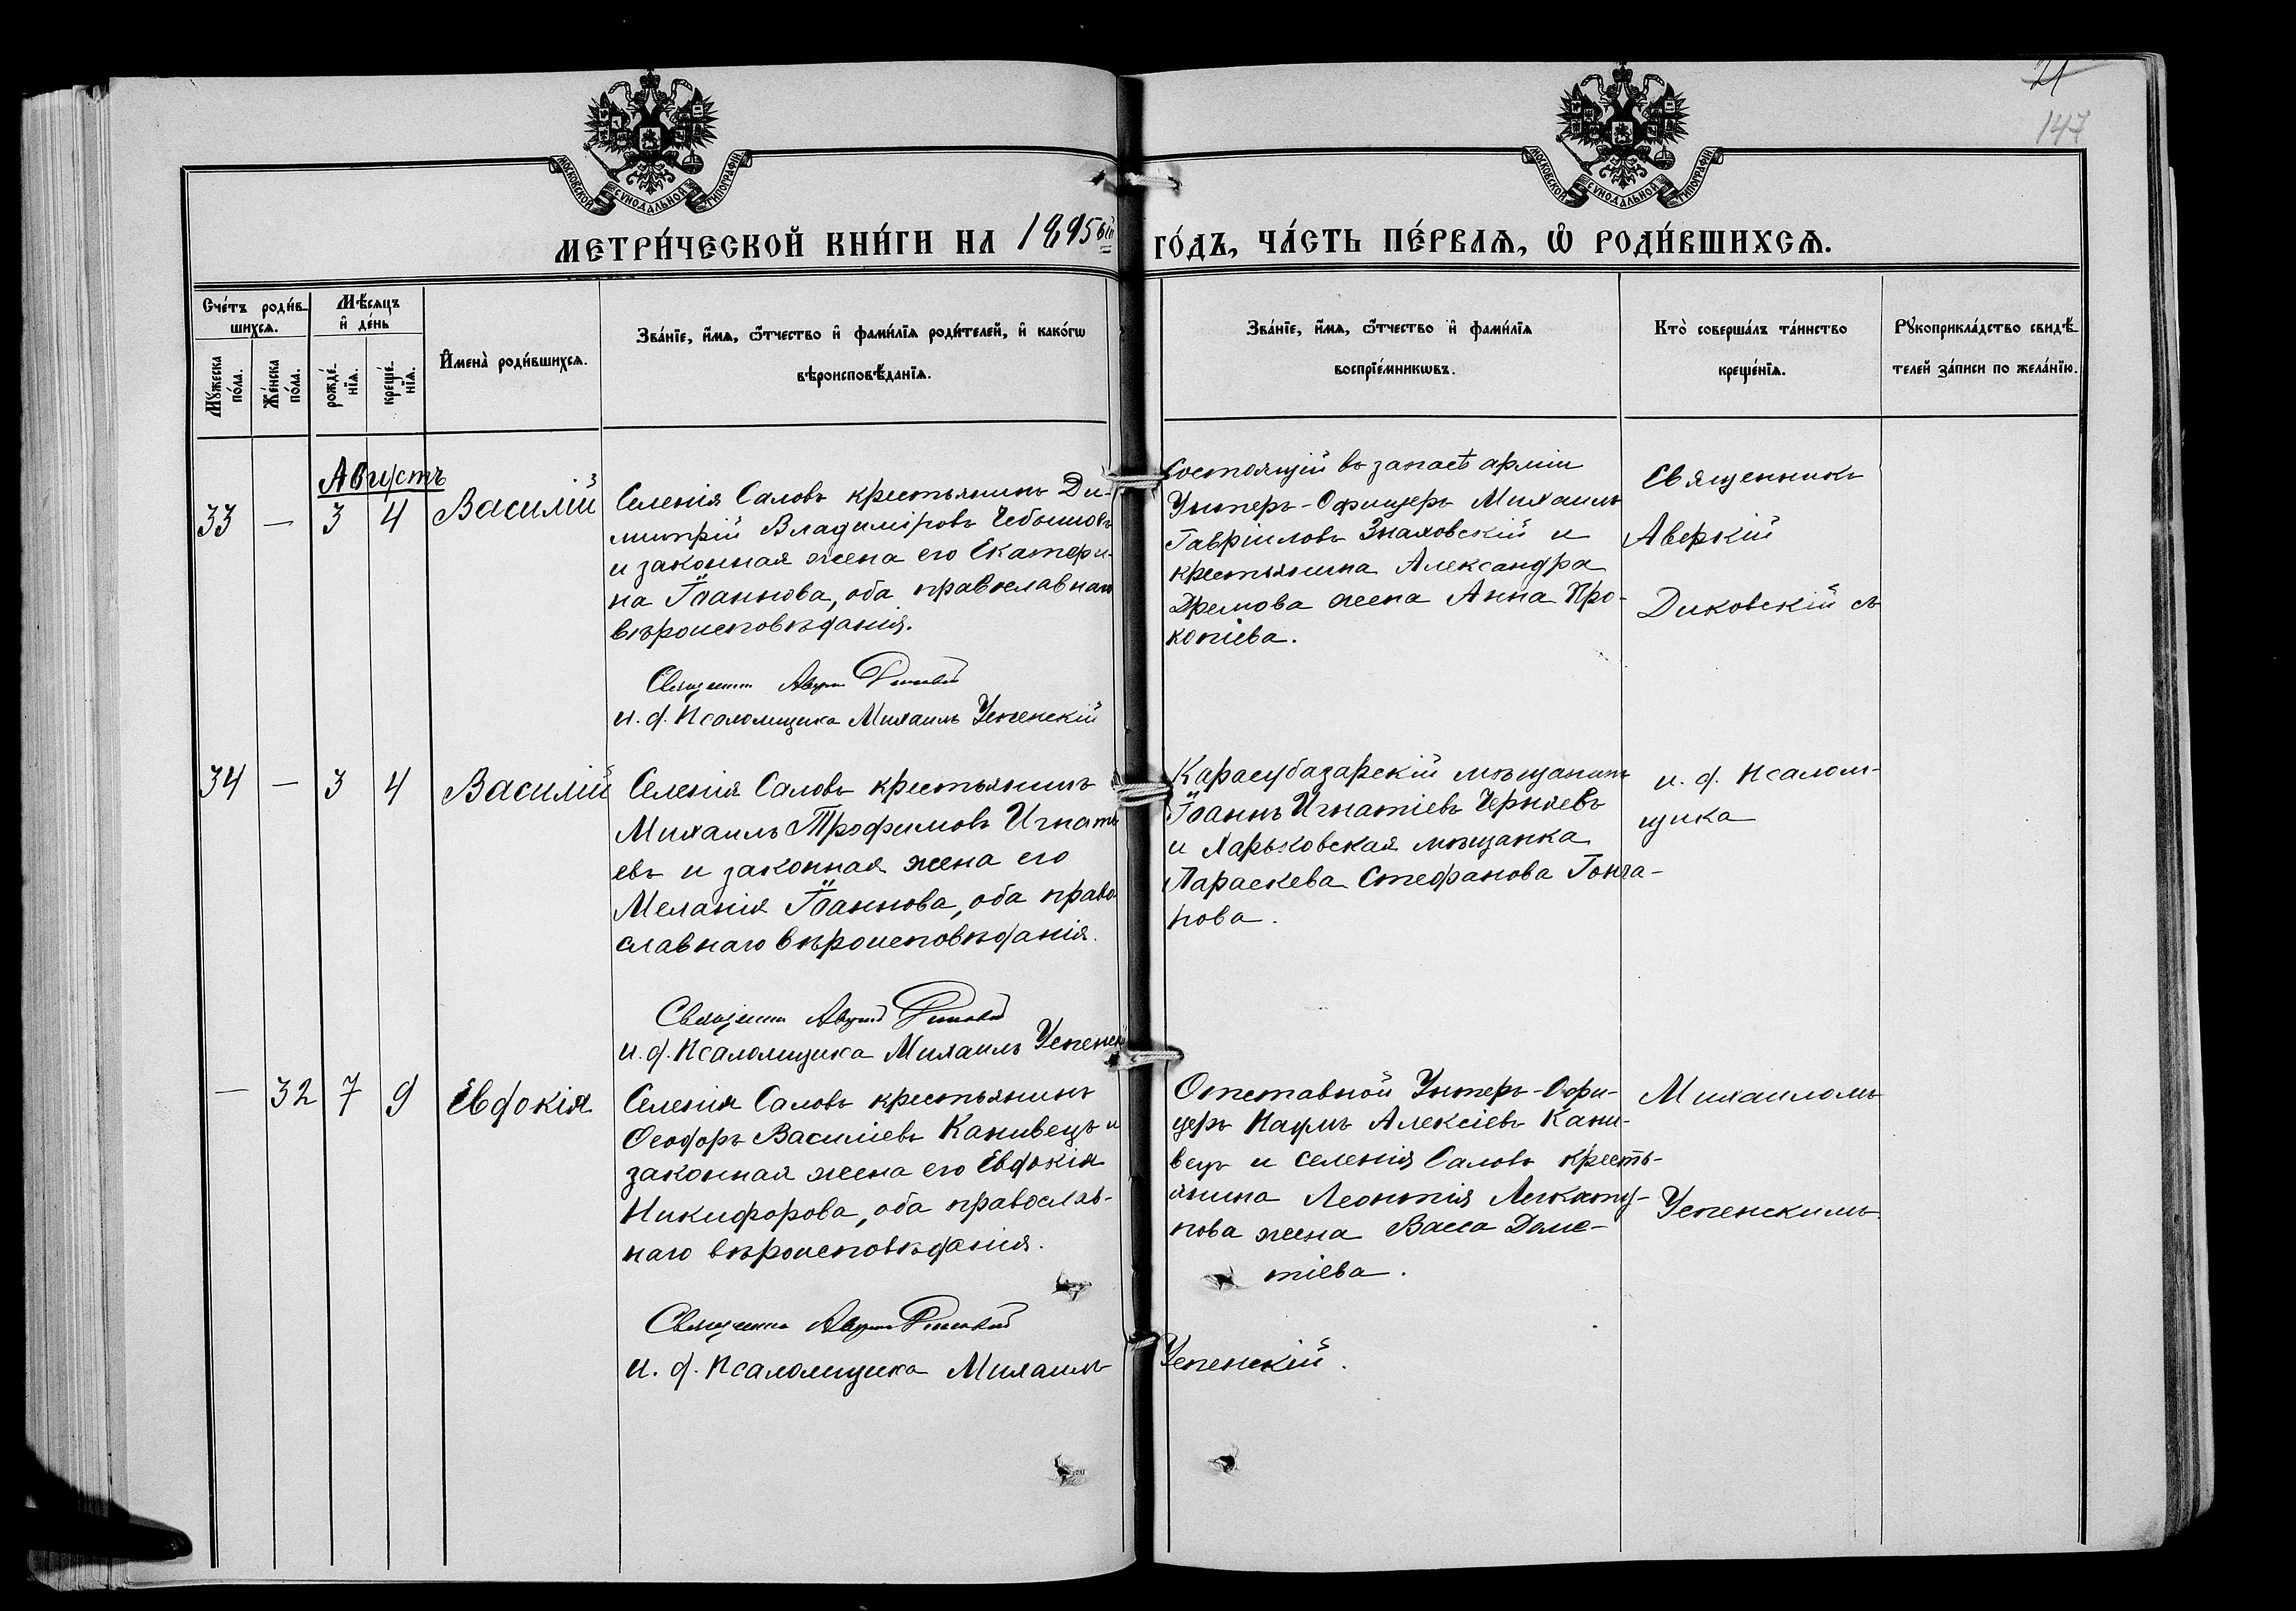 21
147
МОСКОВСКОЙ СУНОДАЛЬНОЙ ТИПОГРАФІИ
МОСКОВСКОЙ СУНОДАЛЬНОЙ ТИПОГРАФІИ
МЕТРИ́ЧЕСКОЙ КНИ́ГИ НА 1895 ый ГО́ДЪ, ЧА́СТЬ ПЕ́РВАѦ, Ѡ РОДИ́ВШИХСѦ.
Сче́тъ роди́в-
шихсѧ.
Мꙋ́жеска по́ла.
Же́нска по́ла.
Мѣ́сѧцъ
и҆ де́нь
рожде́-
нїѧ.
креще́-
нїѧ.
И҆мена̀ роди́вшихсѧ.
Зва́нїе, и҆́мѧ, ѻ҆́тчество и҆ фами́лїѧ роди́телей, и҆ како́гѡ
вѣроисповѣ́данїѧ.
Зва́нїе, и҆́мѧ, ѻ҆́тчество и҆ фами́лїѧ
воспрїе́мникѡвъ.
Кто̀ соверша́лъ та́инство
креще́нїѧ.
Рꙋкоприкла́дство свидѣ́-
телей за́писи по жела́нїю.
Августъ
33 — 3 4 Василій
Селенія Саловъ крестьянинъ Ди-
митрій Владиміровъ Чебышовъ
и законная жена его Екатери-
на Іоаннова, оба православнаго
вѣроисповѣданія.
Священникъ Аверкій Диковскій
и. д. Псаломщика Михаилъ Успенскій
Состоящій въ запасѣ арміи
Унтеръ-Офицеръ Михаилъ
Гавріиловъ Знаховскій и
крестьянина Александра
Дремова жена Анна Про-
копіева.
Священникъ
Аверкій
Диковскій съ
34 — 3 4 Василій
Селенія Саловъ крестьянинъ
Михаилъ Трофимовъ Игнать
евъ и законная жена его
Меланія Іоаннова, оба право-
славнаго вѣроисповѣданія.
Священникъ Аверкій Диковскій
и. д. Псаломщика Михаилъ Успенскій
Карасубазарскій мѣщанинъ
Іоаннъ Игнатіевъ Черняевъ
и Харьковская мѣщанка
Параскева Стефанова Гонча-
рова.
и. д. Псалом-
щика
— 32 7 9 Евдокія
Селенія Саловъ крестьянинъ
Ѳеодоръ Василіевъ Канивецъ и
законная жена его Евдокія
Никифорова, оба православ-
наго вѣроисповѣданія.
Священникъ Аверкій Диковскій
и. д. Псаломщика Михаилъ Успенскій.
Отставной Унтеръ-Офи-
церъ Наумъ Алексіевъ Кани-
вецъ и селенія Саловъ кресть-
янина Леонтія
жена Васса Доме-
тіева.
Михаиломъ
Успенскимъ